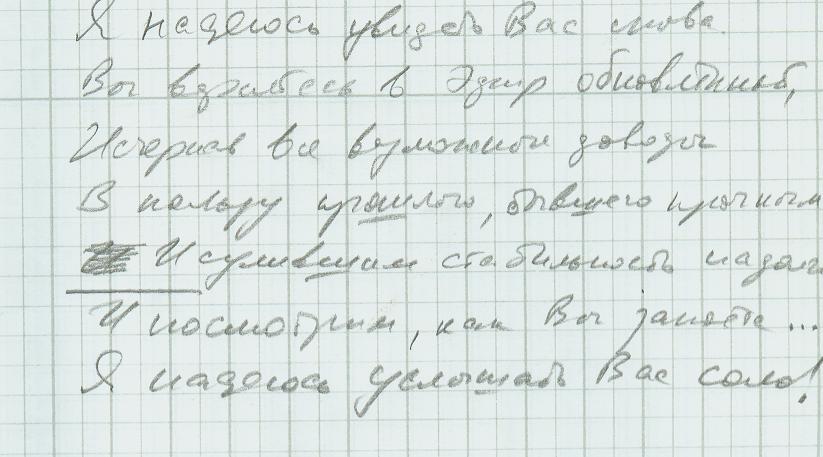 Я надеюсь увидеть Вас снова.
Вы взовьётесь в Эфир обновлённый,
Исчерпав все возможные доводы
В пользу прошлого, бывшего прочным
И сулившим стабильность надолг
И посмотрим, как Вы запоёте...
Я надеюсь услышать Вас соло!